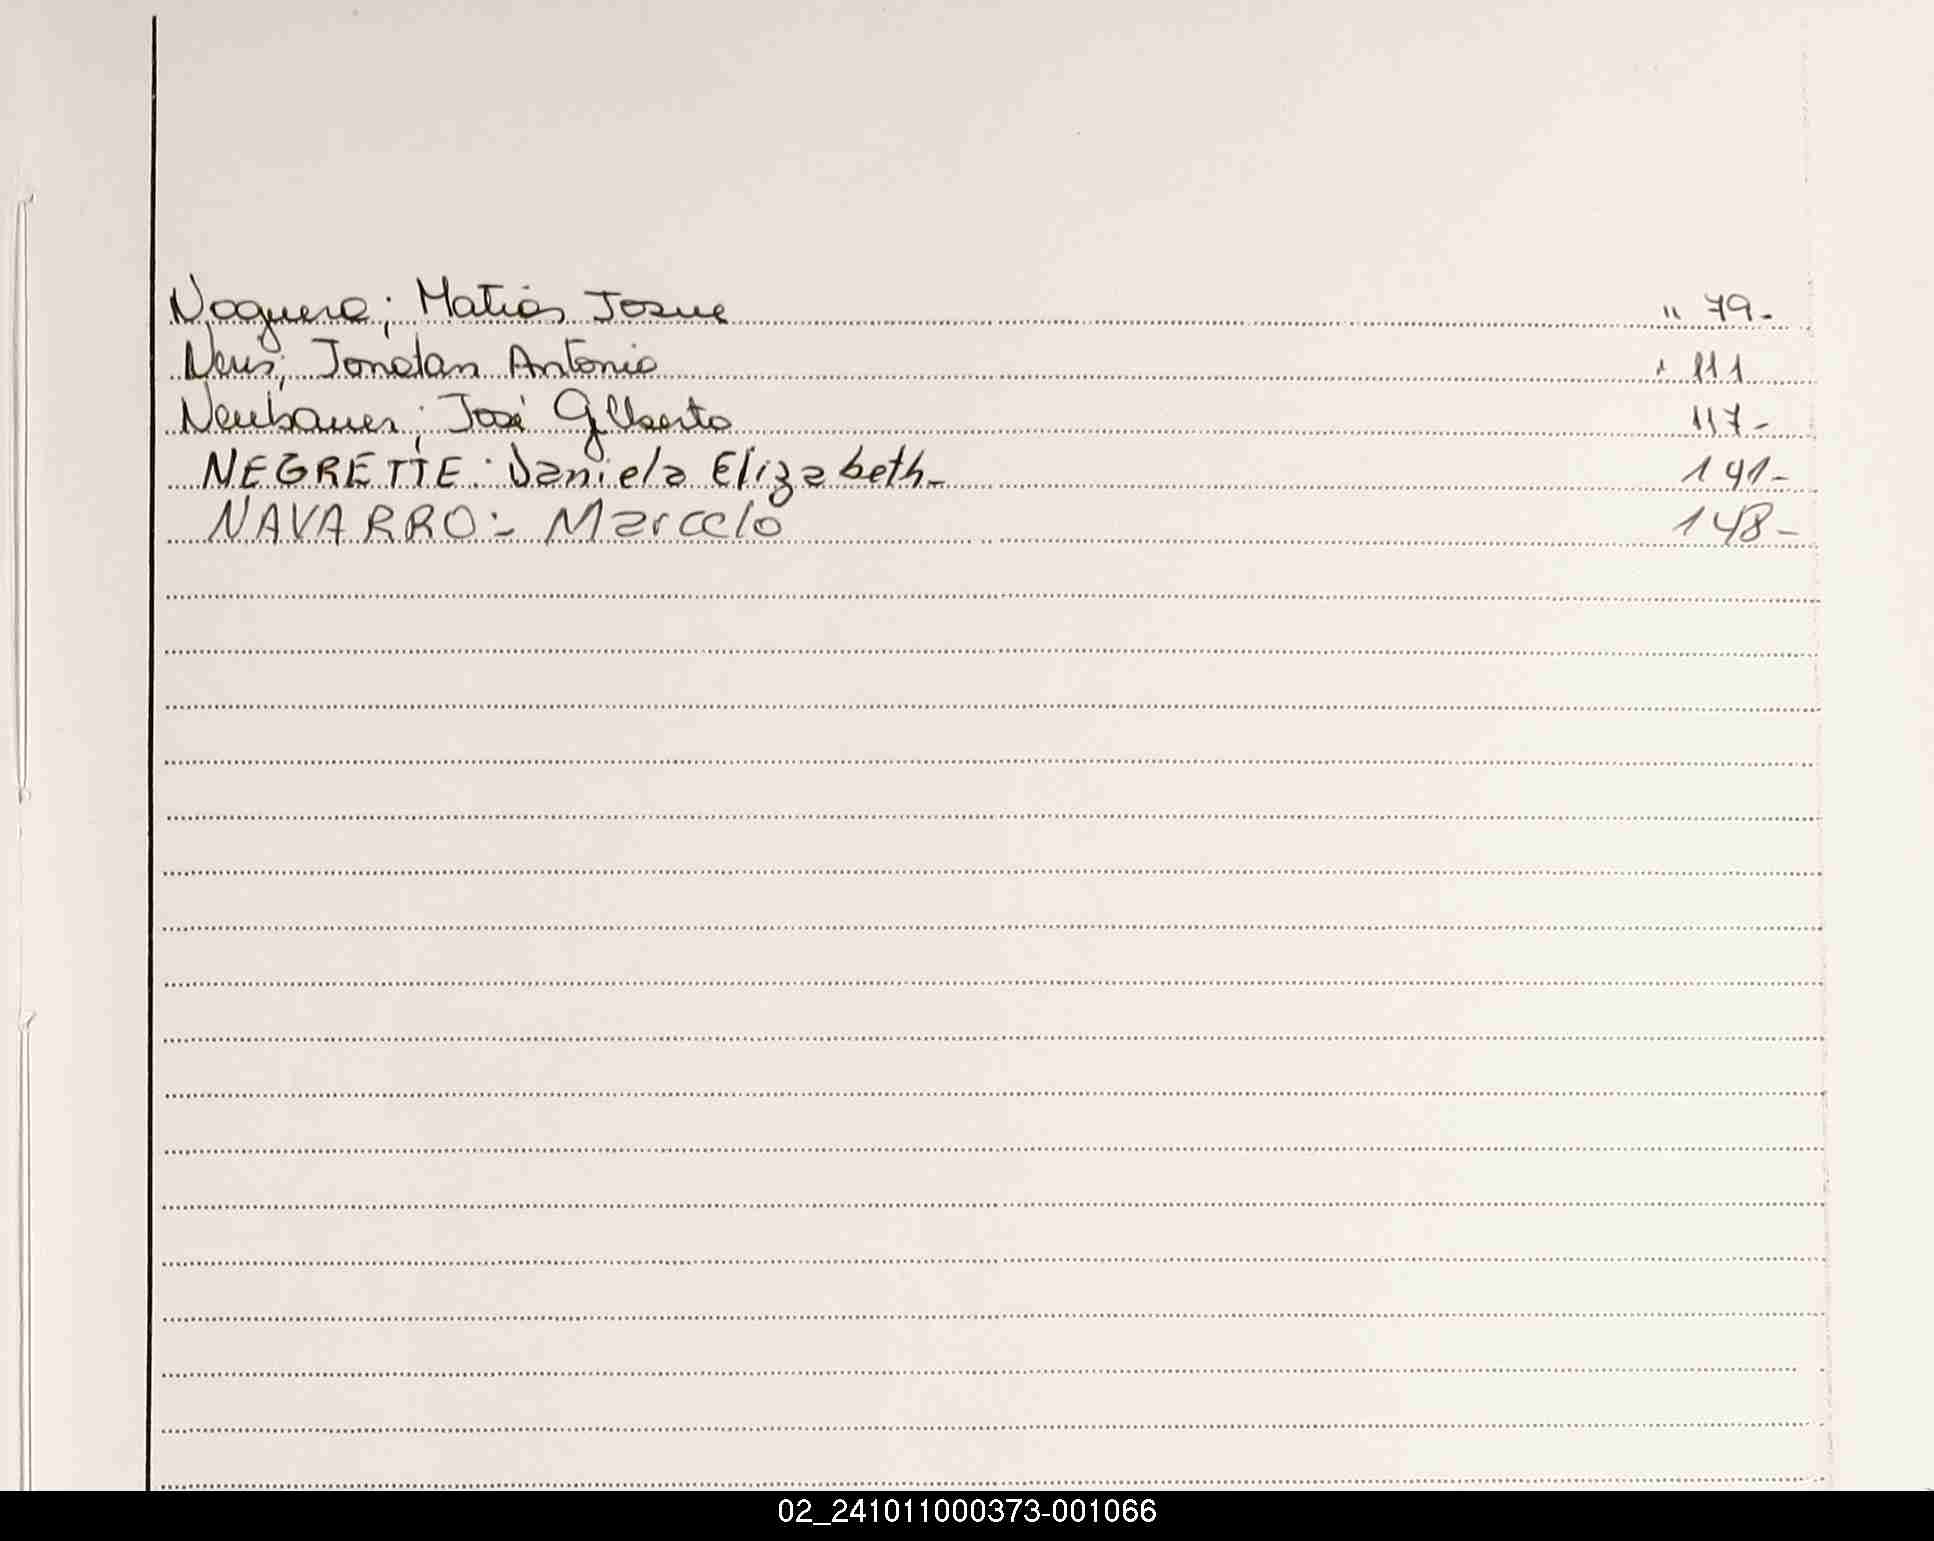 Noguera; Matias Josue " 79-
Neris; Jonatan Antonio " 111
Neubauer; José Gilberto 117-
NEGRETTE: Daniela Elizabeth- 141-
NAVARRO:- Marcelo 148-
02_241011000373-001066